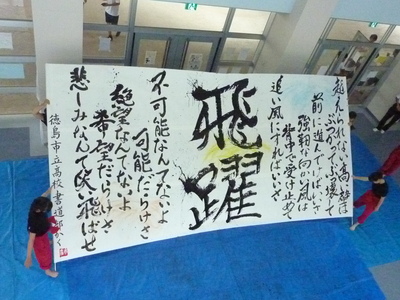 越えられない高い壁は
ぶつかってぶっ壊して
前に進んでけばいいさ
強烈な向かい風は
背中で受け止めて
追い風にすればいいさ
飛躍
不可能なんてないよ
可能だらけさ
絶望なんてないよ
希望だらけさ
悲しみなんて笑い飛ばせ
徳島市立高校書道部かく